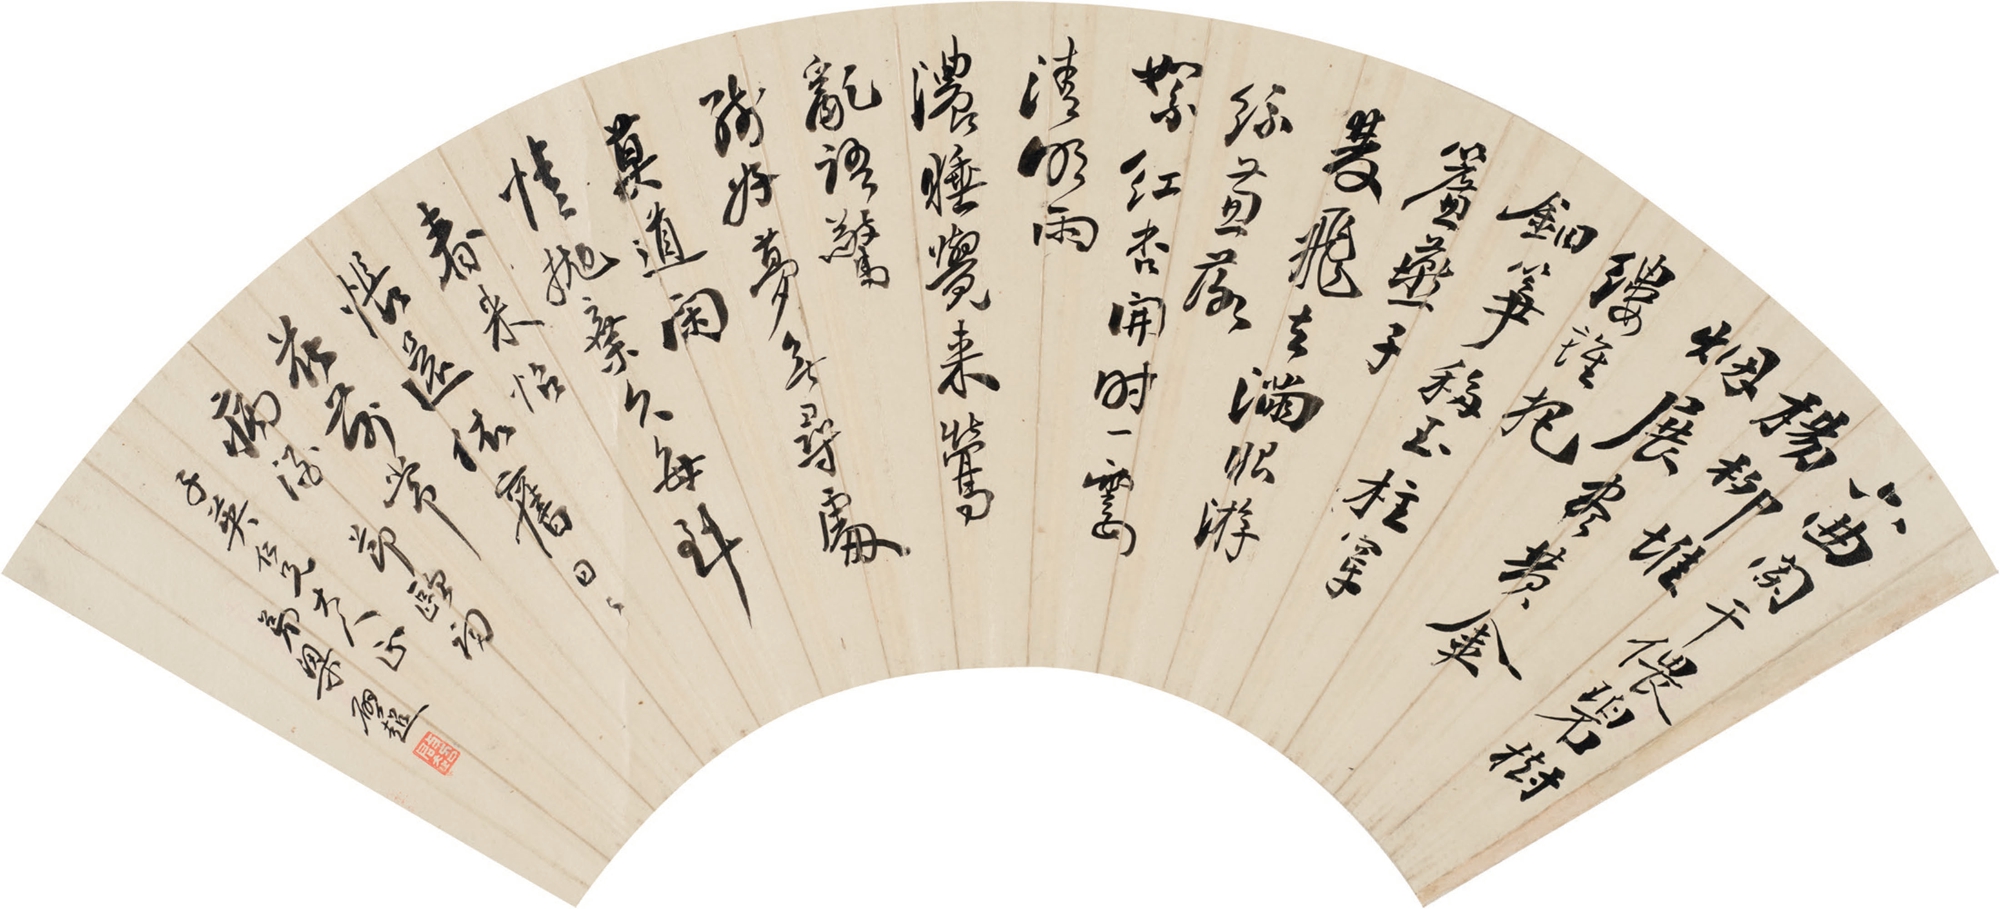 六曲闌干偎碧樹
楊柳堆
烟展尽黄金
縷誰把
鈿箏移玉柱穿
簾燕子
雙飛去滿眼游
絲兼落
絮紅杏開时一霎
清明雨
濃睡覺来鶯
亂語驚
殘好夢無尋處
莫道閑
情抛棄久每到
春来惆
悵還依舊日〻
花前常
病酒
子英仁兄大人正
弟